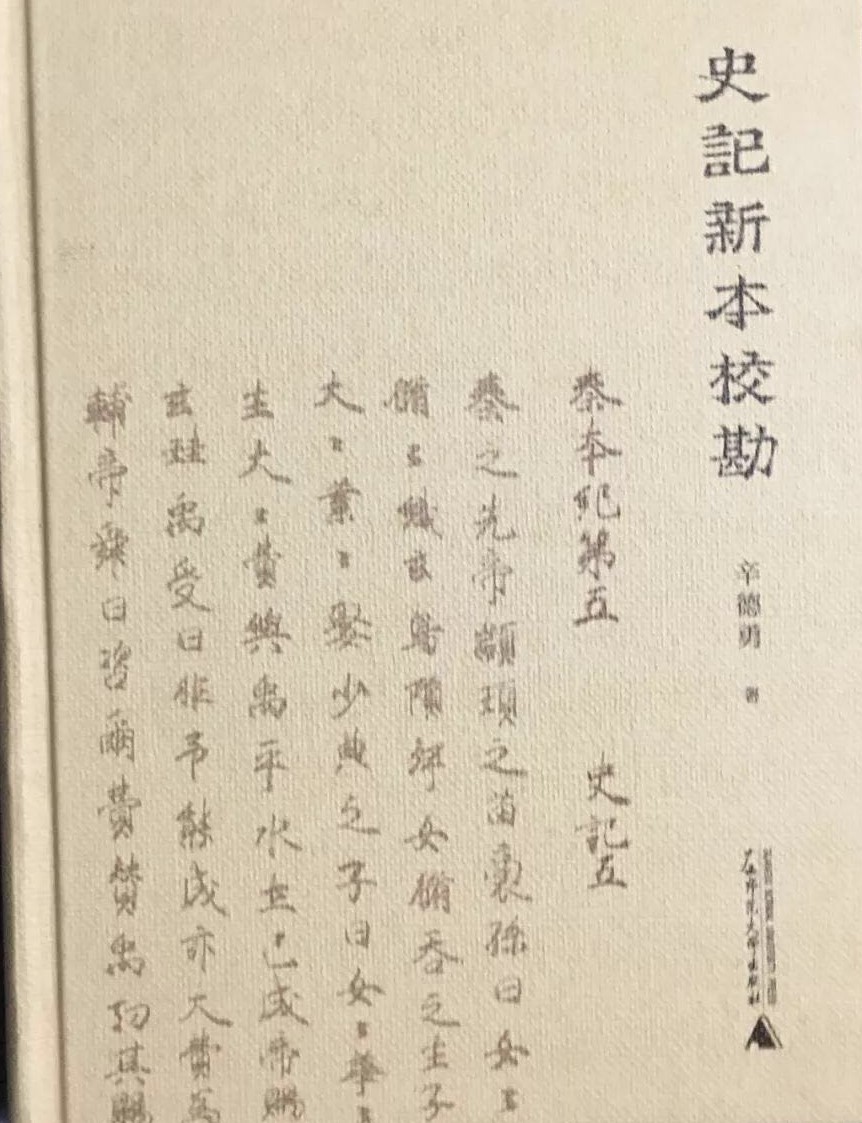 史記新本校勘
辛德勇 著
广西师范大学出版社
秦本紀第五 史記五
秦之先帝顓頊之苗裔孫曰女〻
脩〻織玄鳥隕卵女脩吞之生子
大〻業〻娶少典之子曰女〻華〻
生大〻費與禹平水土已成帝賜
玄珪禹受曰非予能成亦大費爲
輔帝舜曰咨爾費贊禹功其賜